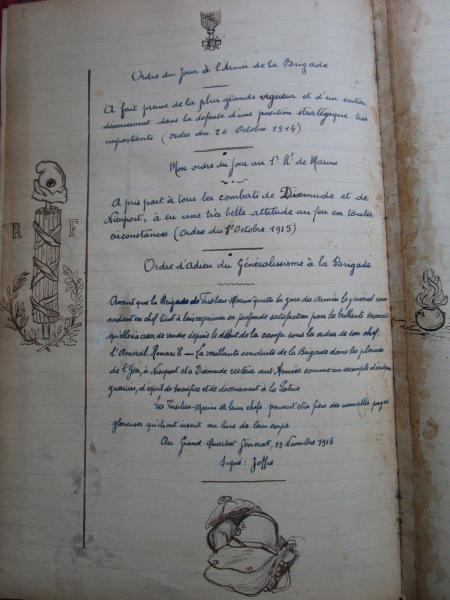 2
Ordre du Jour à l'Armée de la Brigade
A fait preuve de la plus grande vigueur et d'un entier
dévouement dans la défense d'une position stratégique très
importante (ordre du 26 Octobre 1914)
Mon ordre du jour au 1r Rt de Marins
A pris part à tous les combats de Dixmude et de
Nieuport, à eu une très belle attitude au feu en toutes
circonstances (Ordre du 1r Octobre 1915)
R F
Ordre d'Adieu du Généralissime à la Brigade
Avant que la Brigade de Fusiliers Marins quitte la zone des armées le général com
mandant en chef tient à leur exprimer sa profonde satisfaction pour les brillants services
qu'elle n'a cessé de rendre depuis le début de la campe sous les ordres de son chef
l'Amiral Ronarc'h - La vaillante conduite de la Brigade dans les plaines
de l'Yser, à Nieuport et à Dixmude restera aux Armées comme un exemple d'ardeur
guerrière, d'esprit de sacrifice et de dévouement à la Patrie
Les Fusiliers-Marins et leurs chefs peuvent être fiers des nouvelles pages
glorieuses qu'ils ont inscrit au livre de leur corps
Au Grand Quartier Général, 1915
Signé: Joffre